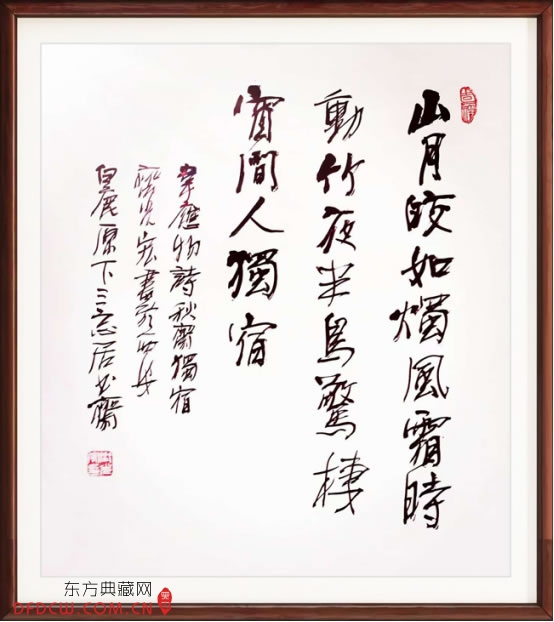 山月皎如燭風霜時
動竹夜半鳥驚棲
窗間人獨宿
韋應物詩秋齋獨宿
書於西安
白鹿原下三居書齋
东方典藏网
DFDCW.COM.CN